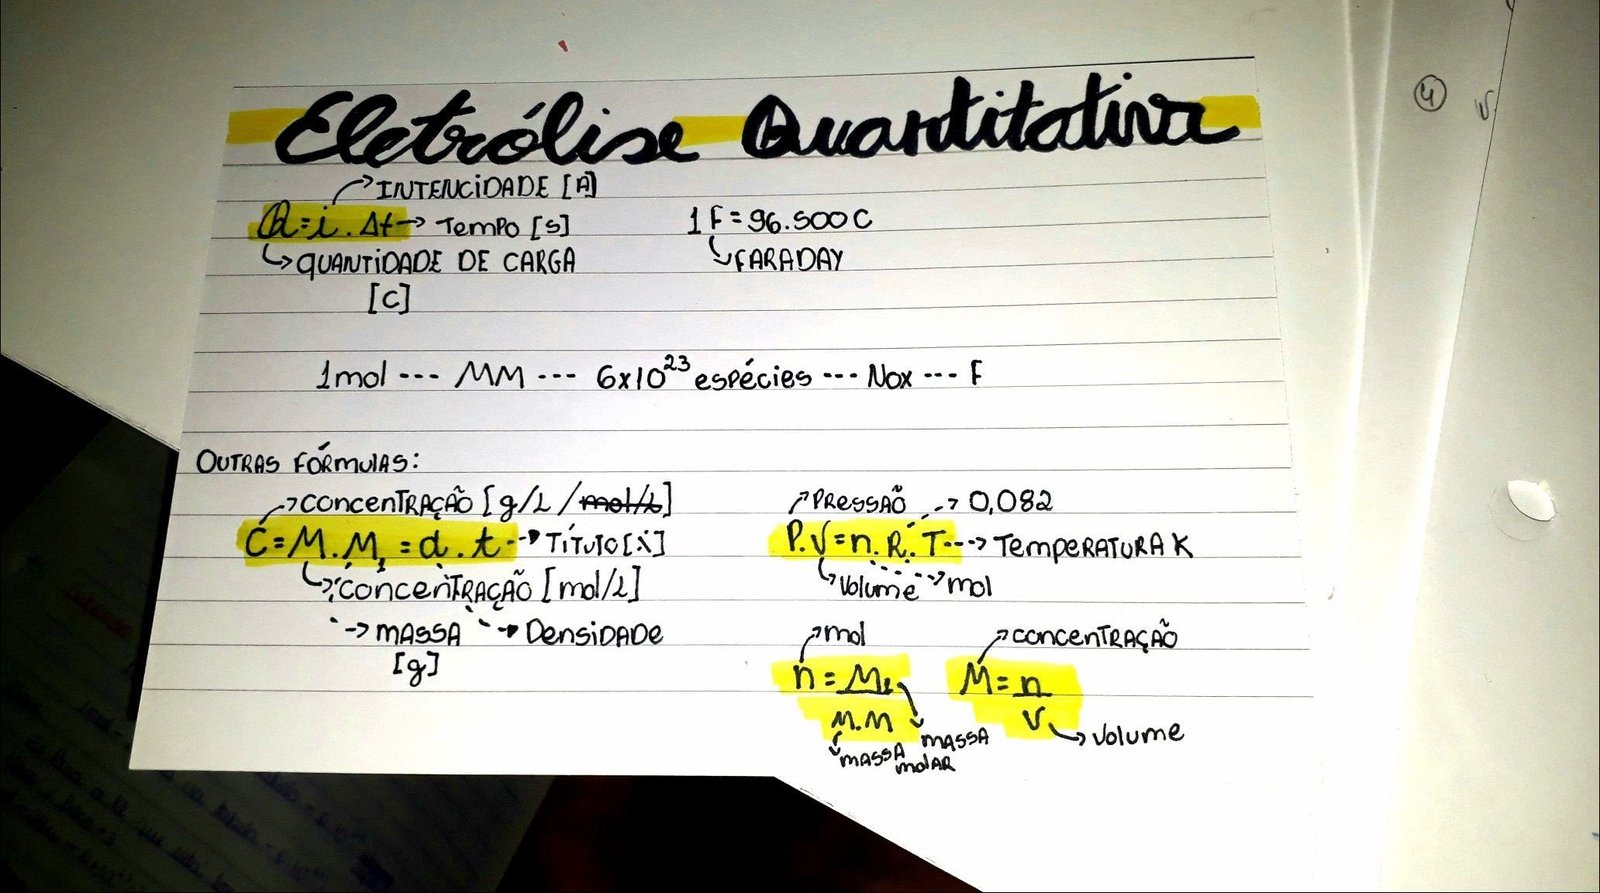 Eletrólise Quantitativa
INTENCIDADE [A]
Q=i.Δt → Tempo [s]
1F=96.500C
QUANTIDADE DE CARGA
[C]
FARADAY
1mol --- MM --- 6x10²³ espécies --- Nox --- F
OUTRAS FÓRMULAS:
concenTRAÇÃO [g/L /mol/L]
C=M.M₁=d.t --→ TíTuTO [%]
concenTRAÇÃO [mol/L]
--→ MASSA --→ DensiDADE
[g]
PRESSÃO --→ 0,082
P.V=n.R.T ---→ TempeRATURA K
Volume --→ mol
mol
n = M₁
M.M
MASSA
MASSA molAR
concenTRAÇÃO
M = n
V → Volume
4